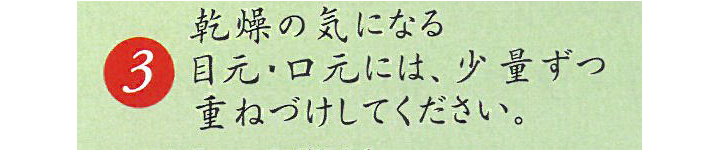 3
乾燥の気になる
目元・口元には、少量ずつ
重ねづけしてください。